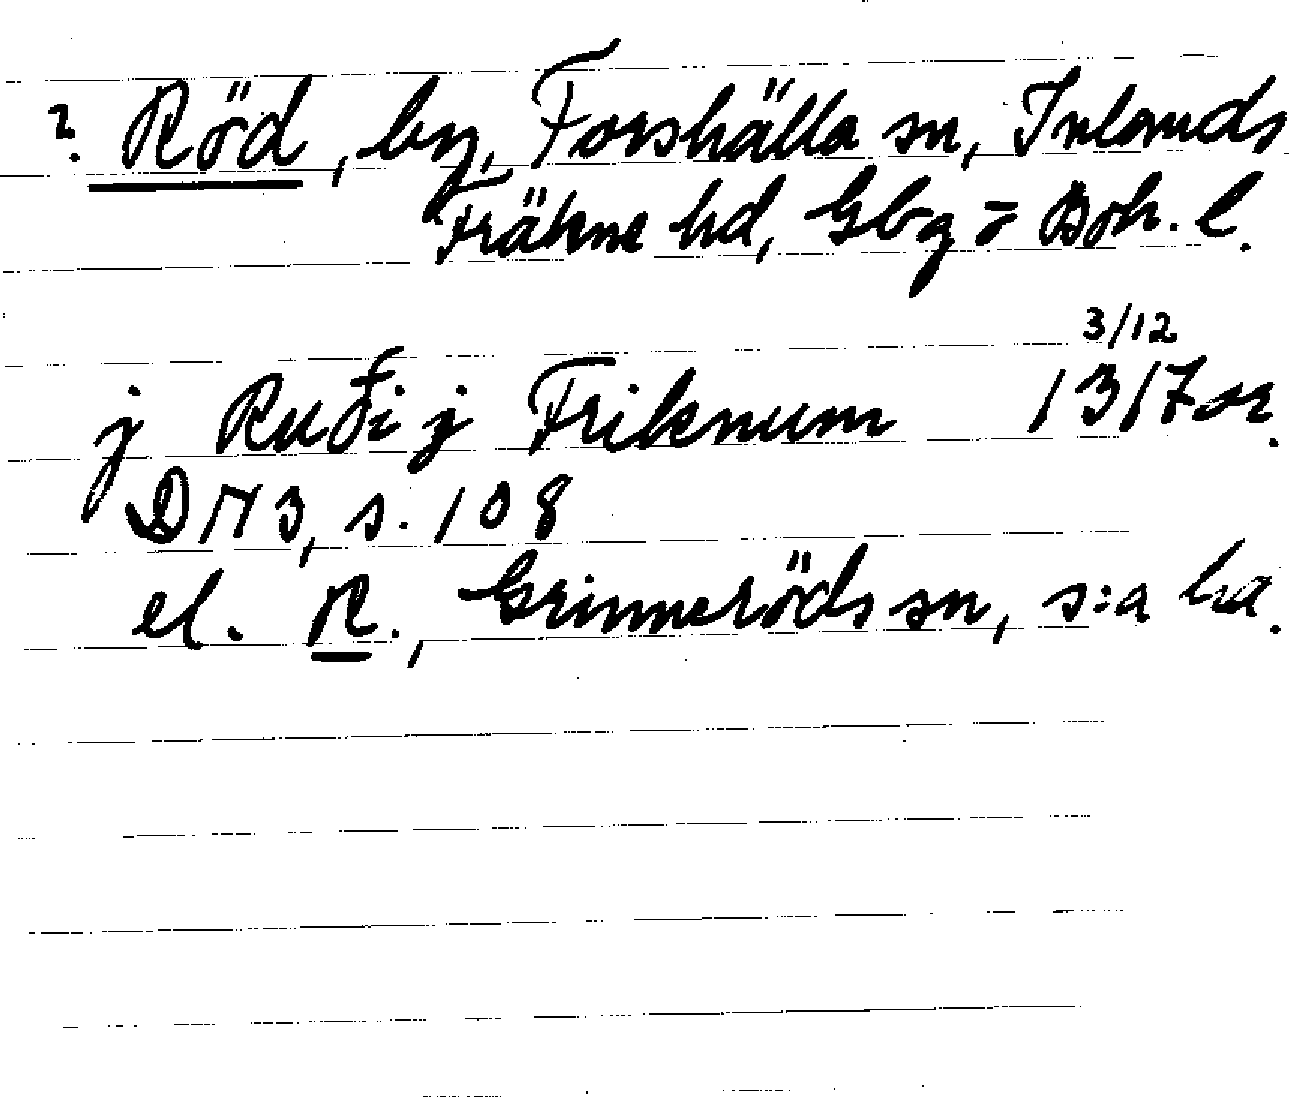 ? Röd, by, Forshälla sn, Inlands
Fräkne hd, Gbg o Boh. l.
3/12
j Ruði j Friknum 1317 or.
DN 3, s. 108
el. R., Grinneröds sn, s:a hd.